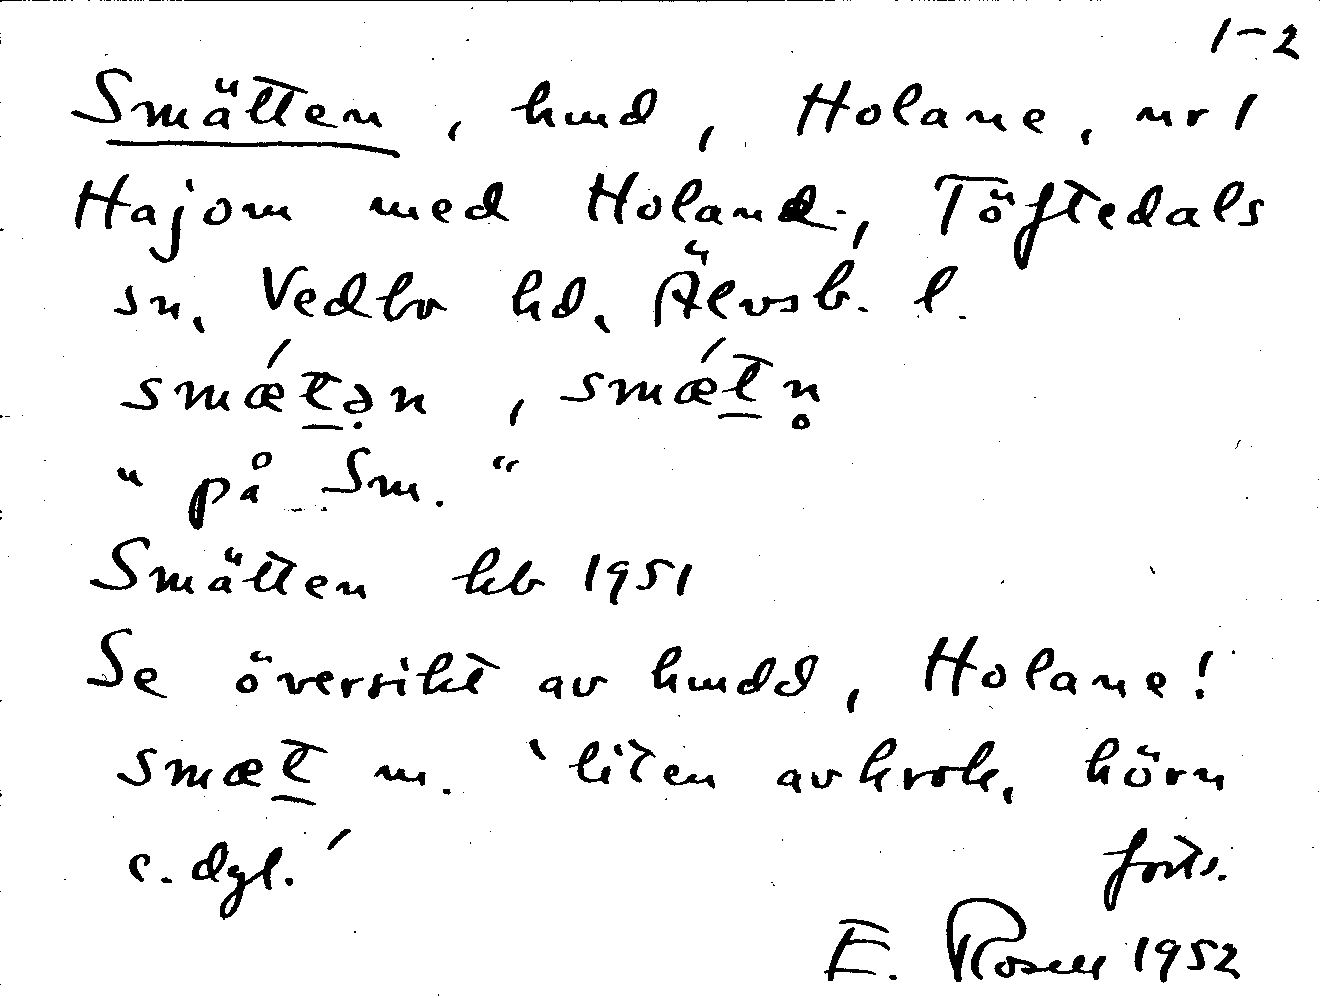 1-2
Smätten, hmd, Holane, nr 1
Hajom med Holand, Töftedals
sn, Vedbo hd, Älvsb. l.
smǽt̲ə̣n, smǽt̲n̥
"på Sm."
Smätten kb 1951
Se översikt av hmdd, Holane!
smæt̲ m. 'liten avkrok, hörn
e. dgl.'
forts.
E. Rosell 1952